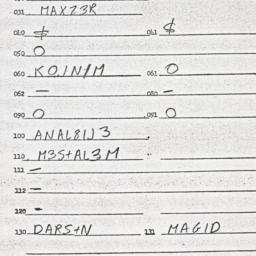 031 MAXZ3R
040 $ 041 $
050 O
060 KO.IN/M 061 O
062 — 080 —
090 O 091 O
100 ANAL81J3
110 M3S+AL3M
111 —
112 —
120 -
130 DARS+N 131 MAGID